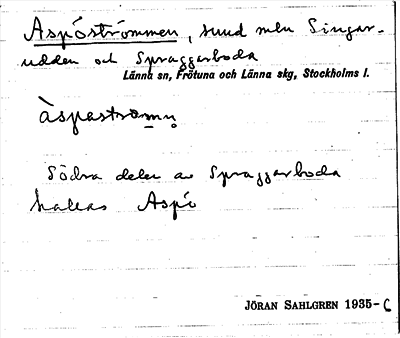 Aspöströmmen, sund mln Singar-
udden och Spraggarboda
Länna sn, Frötuna och Länna skg, Stockholms l.
àspastromṇ
Södra delen av Spraggarboda
kallas Aspö
JÖRAN SAHLGREN 1935-6